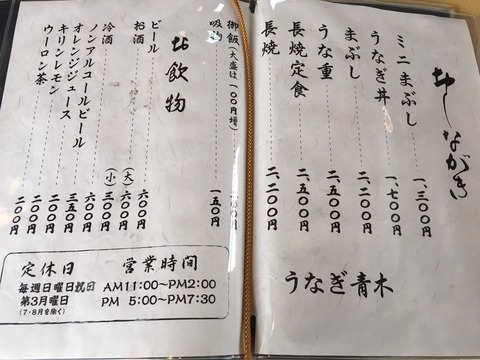 おしながき
ミニまぶし 一、三〇〇円
うなぎ丼 一、七〇〇円
まぶし 二、二〇〇円
うな重 二、五〇〇円
長焼定食 二、五〇〇円
長焼 二、二〇〇円
うなぎ青木
御飯(大盛は一〇〇円増)
吸物 一五〇円
お飲物
ビール 六〇〇円
お酒 (大) 六〇〇円
(小) 三〇〇円
冷酒 六〇〇円
ノンアルコールビール 三五〇円
オレンジジュース 二〇〇円
キリンレモン 二〇〇円
ウーロン茶 二〇〇円
定休日
毎週日曜日祝日
第3月曜日
(7・8月を除く)
営業時間
AM11:00~PM2:00
PM 5:00~PM7:30